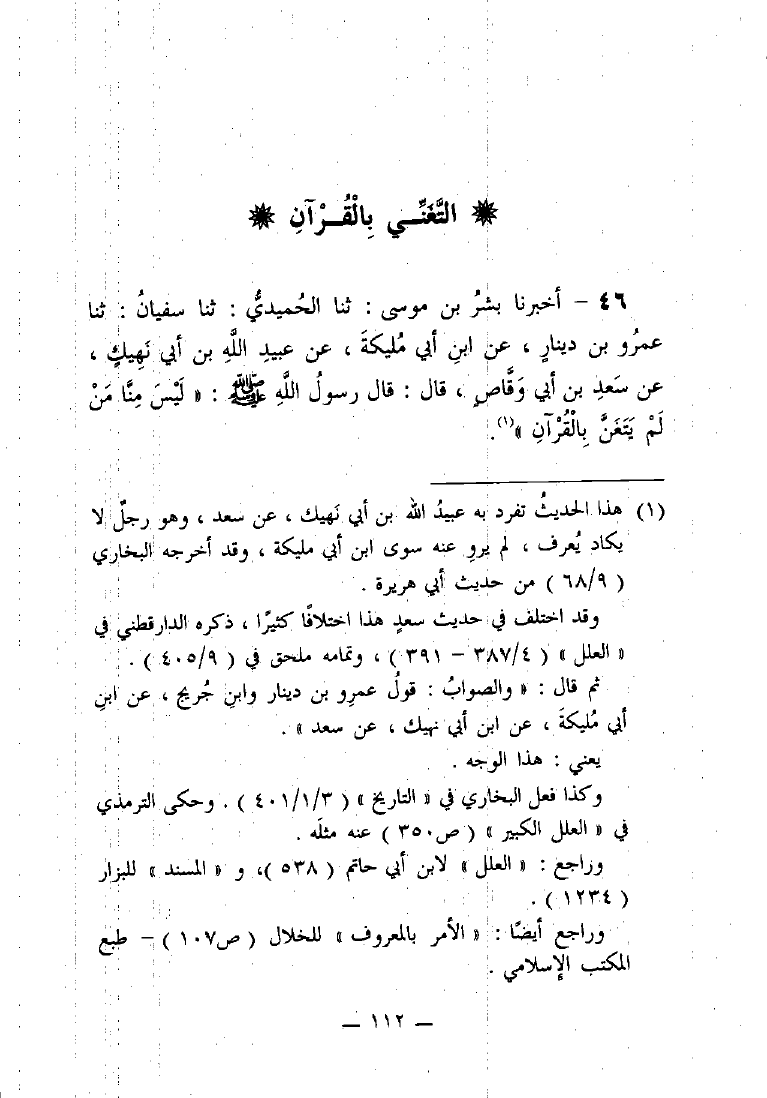 ❋ التَّغَنِّـــي بِالْقُـــرْآنِ ❋
٤٦ – أخبرنا بشرُ بن موسى : ثنا الحُميديُّ : ثنا سفيانُ : ثنا
عمرُو بن دينارٍ ، عن ابنِ أبي مُليكةَ ، عن عبيدِ اللَّهِ بن أبي نَهِيكٍ ،
عن سَعدِ بن أبي وَقَّاصٍ ، قال : قال رسولُ اللَّهِ ﷺ : « لَيْسَ مِنَّا مَنْ
لَمْ يَتَغَنَّ بِالْقُرْآنِ »(١).
(١) هذا الحديثُ تفرد به عبيدُ الله بن أبي نَهيك ، عن سعد ، وهو رجلٌ لا
يكاد يُعرف ، لم يروِ عنه سوى ابن أبي مليكة ، وقد أخرجه البخاري
( ٦٨/٩ ) من حديث أبي هريرة .
وقد اختلف في حديث سعدٍ هذا اختلافًا كثيرًا ، ذكره الدارقطني في
« العلل » ( ٣٨٧/٤ – ٣٩١ ) ، وتمامه ملحق في ( ٤٠٥/٩ ) .
ثم قال : « والصوابُ : قولُ عمرِو بن دينار وابنِ جُريج ، عن ابنِ
أبي مُليكةَ ، عن ابن أبي نهيك ، عن سعد » .
يعني : هذا الوجه .
وكذا فعل البخاري في « التاريخ » ( ٤٠١/١/٣ ) . وحكى الترمذي
في « العلل الكبير » ( ص٣٥٠ ) عنه مثلَه .
وراجع : « العلل » لابن أبي حاتم ( ٥٣٨ )، و « المسند » للبزار
( ١٢٣٤ ) .
وراجع أيضًا : « الأمر بالمعروف » للخلال ( ص١٠٧ ) – طبع
المكتب الإسلامي .
— ١١٢ —